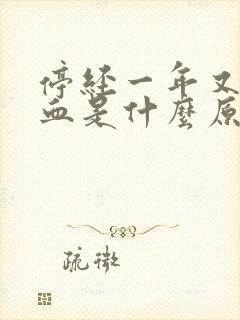 停經一年又
血是什麼原
疏微